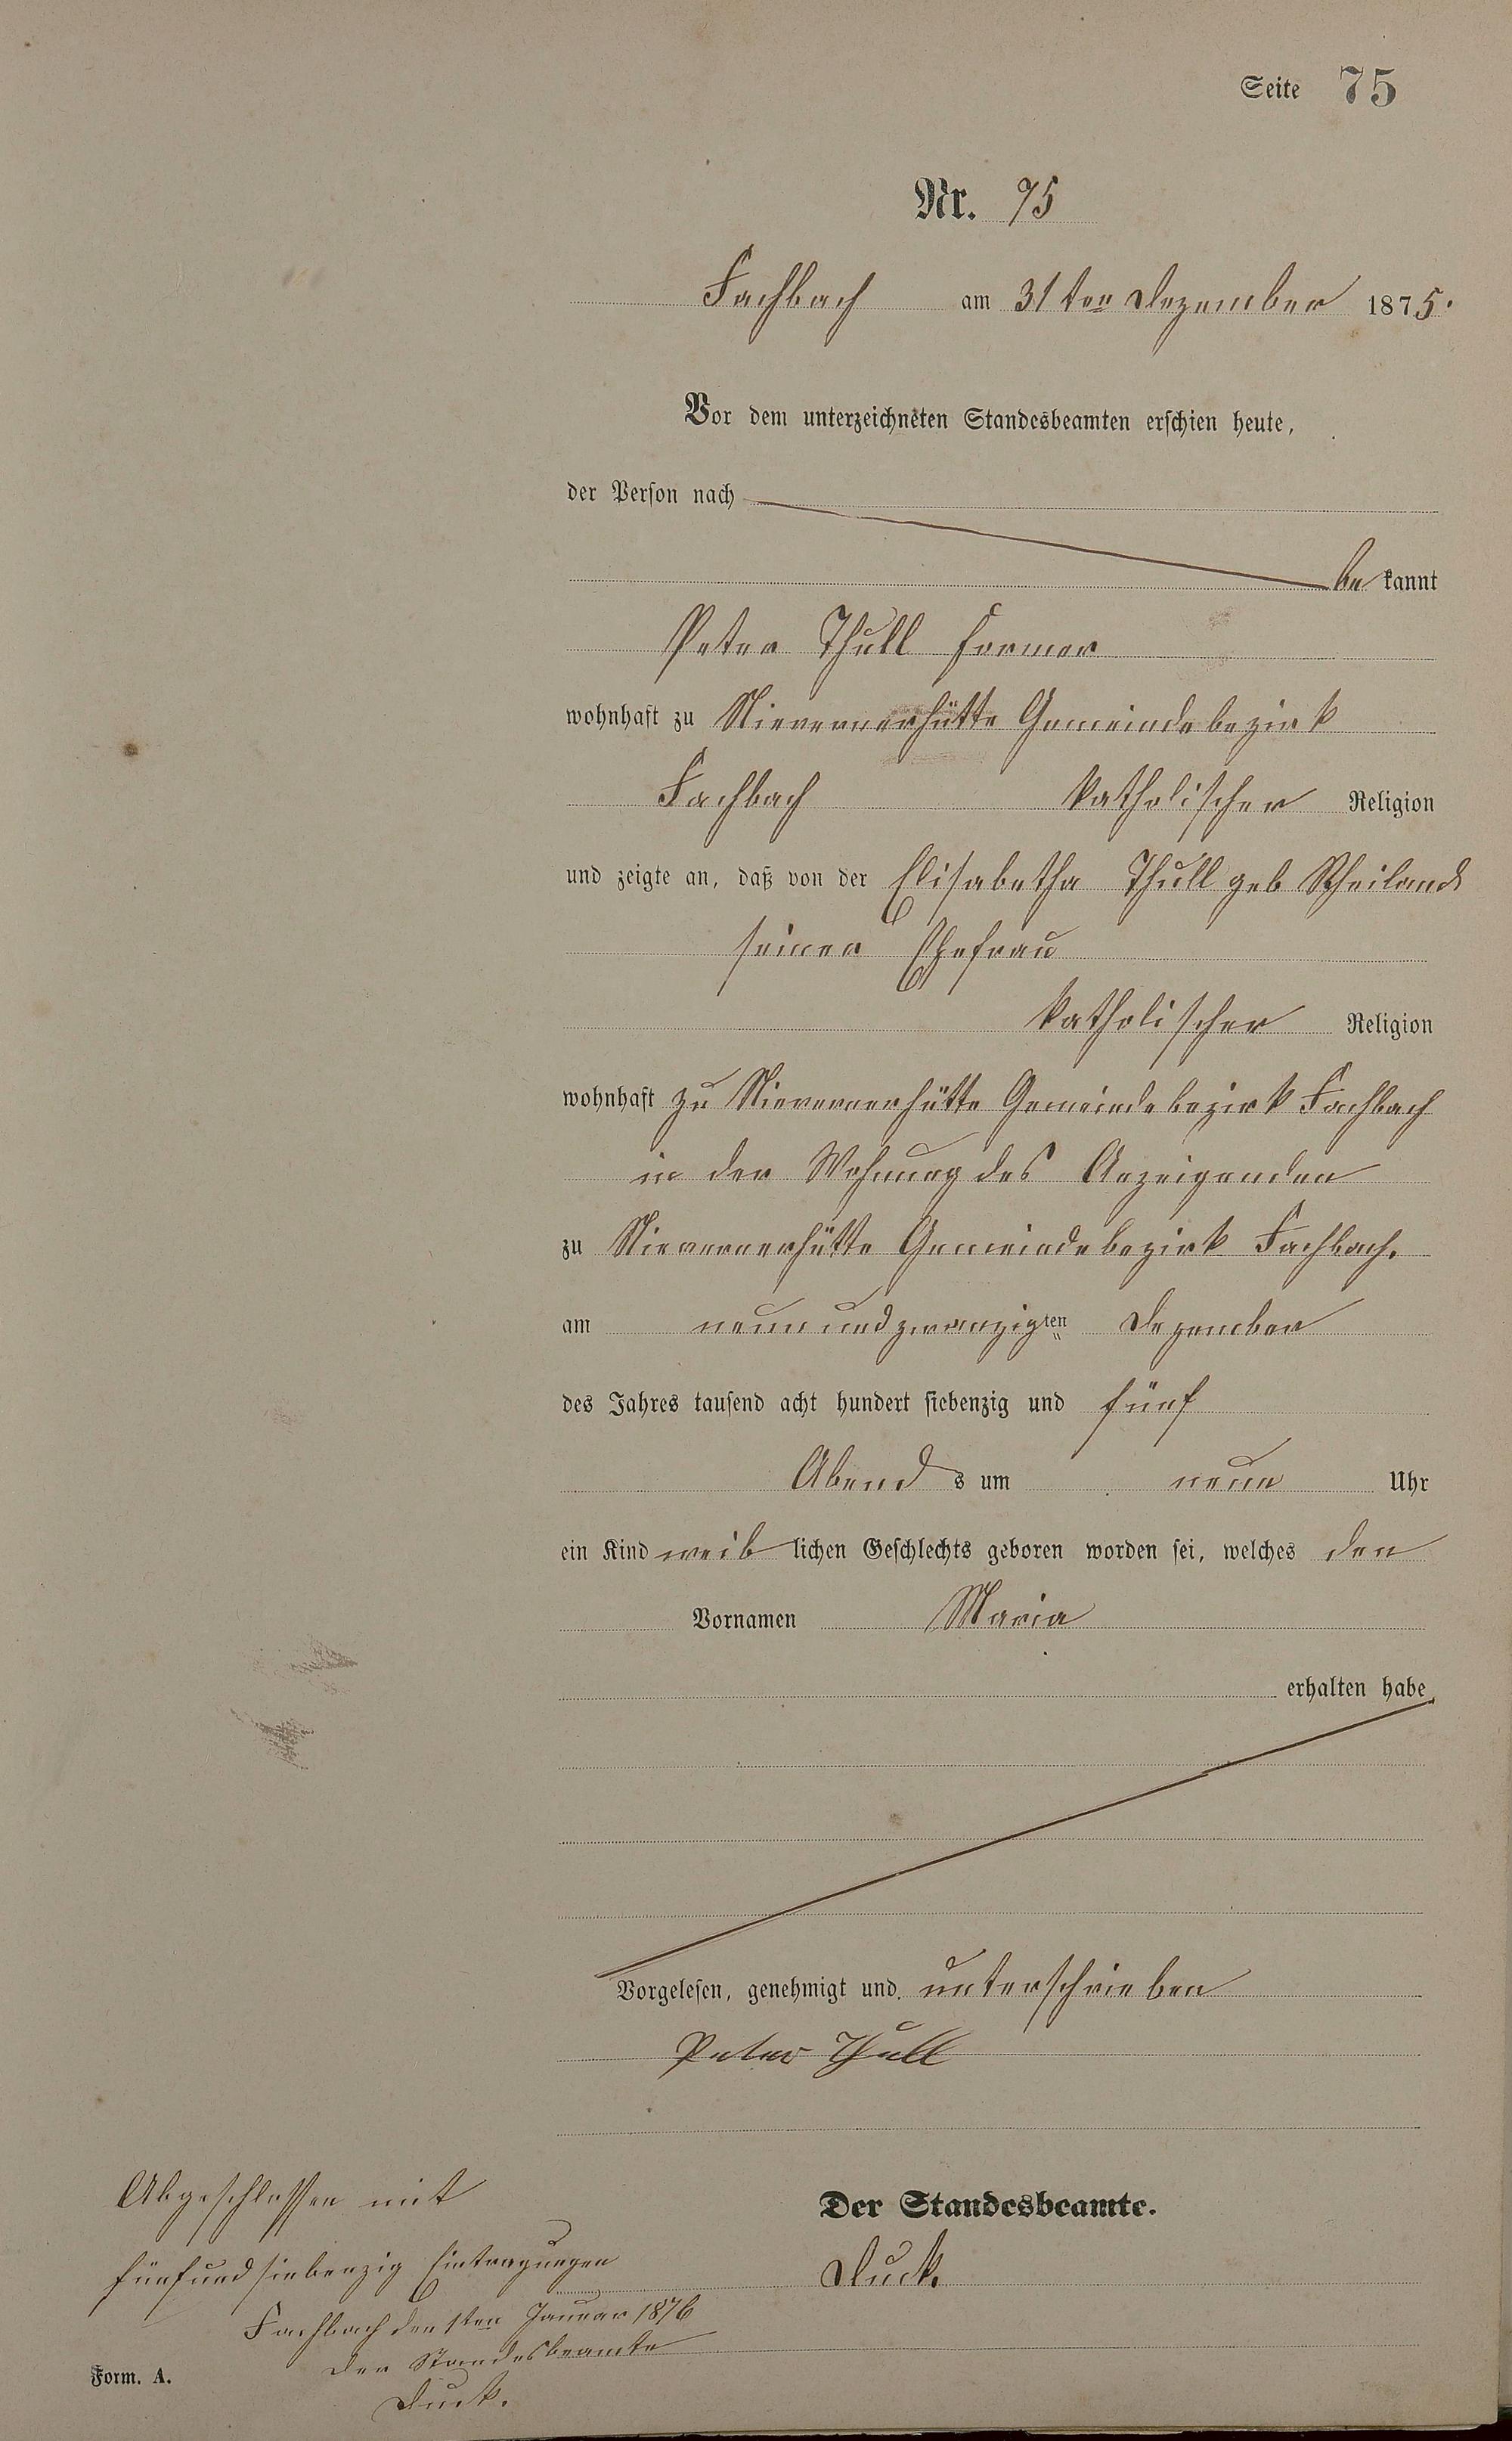 Seite 75
Nr. 75
Fachbach am 31ten Dezember 1875.
Vor dem unterzeichneten Standesbeamten erschien heute,
der Person nach
be kannt
Peter Thull Former
wohnhaft zu Nievernerhütte Gemeindebezirk
Fachbach katholischer Religion
und zeigte an, daß von der Elisabetha Thull geb
seiner Ehefrau
katholischer Religion
wohnhaft zu Nievernerhütte Gemeindebezirk Fachbach
in der Wohnung des Anzeigenden
zu Nievernerhütte Gemeindebezirk Fachbach.
am neunundzwanzigten Dezember
des Jahres tausend acht hundert siebenzig und fünf
Abend s um neun Uhr
ein Kind weib lichen Geschlechts geboren worden sei, welches den
Vornamen Maria
erhalten habe
Vorgelesen, genehmigt und unterschrieben
Peter Thull
Der Standesbeamte.
Duck.
Abgeschlossen mit
fünfundsiebenzig Eintragungen
Fachbach den 1ten Januar 1876
Der Standesbeamte
Duck.
Form. A.